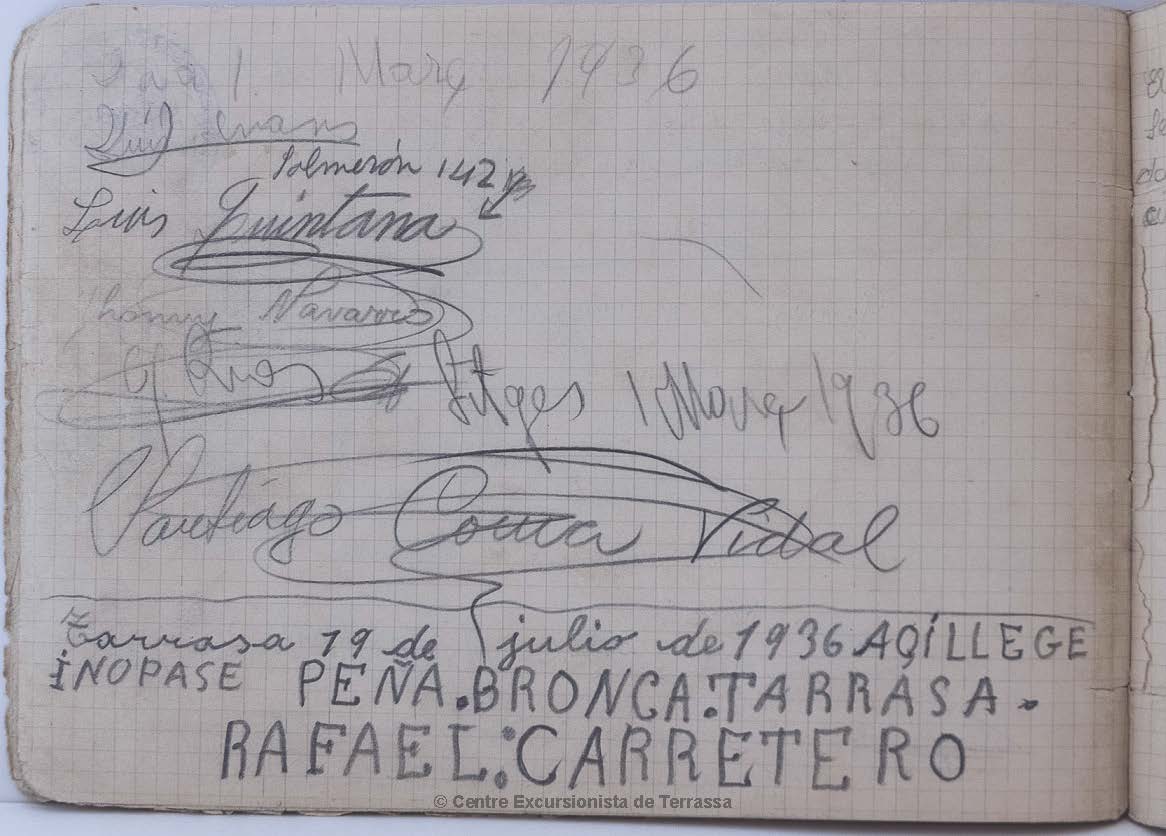 Dia 1 Març 1936
Lluís
Salmerón 142
Luis Quintana
Navarro
Sitges 1 Març 1936
Santiago Coma Vidal
Tarrasa 19 de julio de 1936 AQÍ LLEGE
İNOPASE PEÑA.BRONCA.TARRASA.
RAFAEL:CARRETERO
© Centre Excursionista de Terrassa